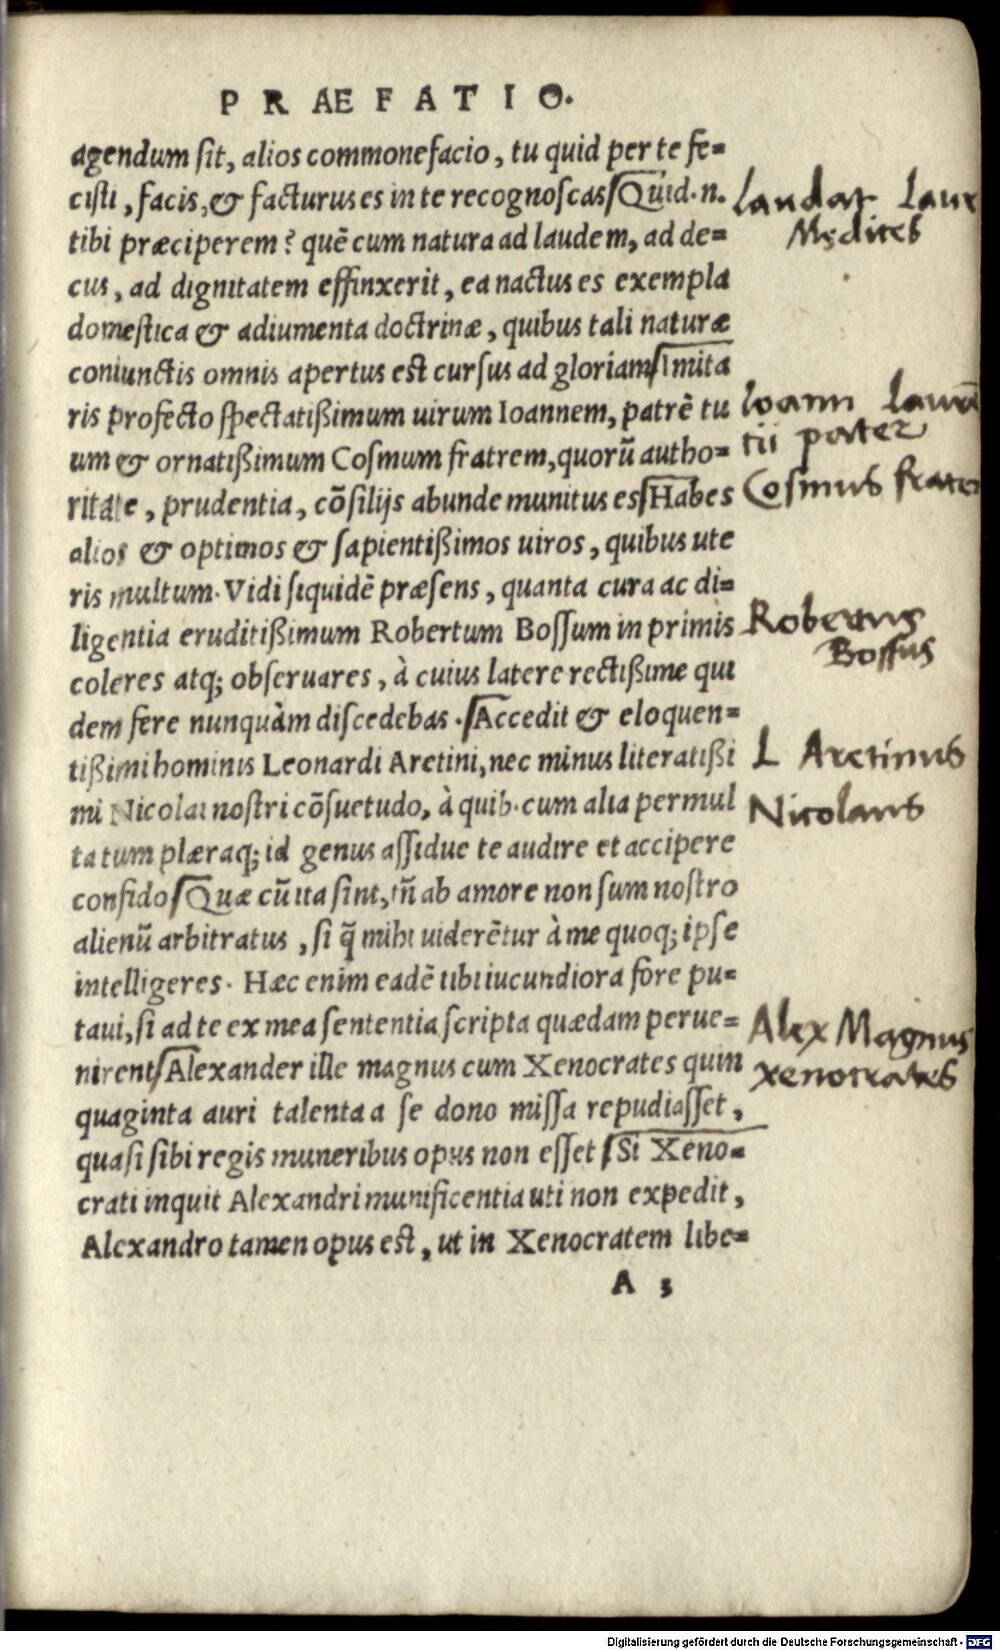 PRÆFATIO.
agendum sit, alios commonefacio, tu quid per te fe=
cisti, facis, & facturus es in te recognoscas Quid.n.
laudat Laur
tibi præciperem? quẽ cum natura ad laudem, ad de=
Medices
cus, ad dignitatem effinxerit, ea nactus es exempla
domestica & adiumenta doctrinæ, quibus tali naturæ
coniunctis omnis apertus est cursus ad gloriam Imita
ris profecto spectatißimum uirum Ioannem, patrẽ tu
Ioann Laurẽ
um & ornatißimum Cosmum fratrem, quorũ autho=
tii pater
ritate, prudentia, cõsilijs abunde munitus es Habes
Cosmus frater
alios & optimos & sapientißimos uiros, quibus ute
ris multum. Vidi siquidẽ præsens, quanta cura ac di=
ligentia eruditißimum Robertum Bossum in primis
Robertus
Bossus
coleres atq; obseruares, à cuius latere rectißime qui
dem fere nunquàm discedebas. Accedit & eloquen=
tißimi hominis Leonardi Aretini, nec minus literatißi
L Aretinus
mi Nicolai nostri cõsuetudo, à quib. cum alia permul
Nicolaus
ta tum plæraq; id genus assidue te audire et accipere
confido Quæ cũ ita sint, tñ ab amore non sum nostro
alienũ arbitratus, si q̃ mihi uiderẽtur à me quoq; ipse
intelligeres. Hæc enim eadẽ tibi iucundiora fore pu=
taui, si ad te ex mea sententia scripta quædam perue=
Alex Magnus
nirent Alexander ille magnus cum Xenocrates quin
xenocrates
quaginta auri talenta a se dono missa repudiasset,
quasi sibi regis muneribus opus non esset Si Xeno=
crati inquit Alexandri munificentia uti non expedit,
Alexandro tamen opus est, ut in Xenocratem libe=
A 3
Digitalisierung gefördert durch die Deutsche Forschungsgemeinschaft - DFG